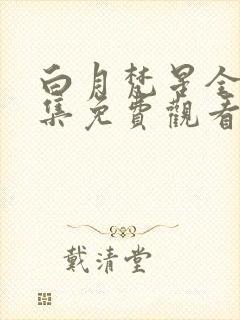 白月梵星全
集免費觀看
戴清堂